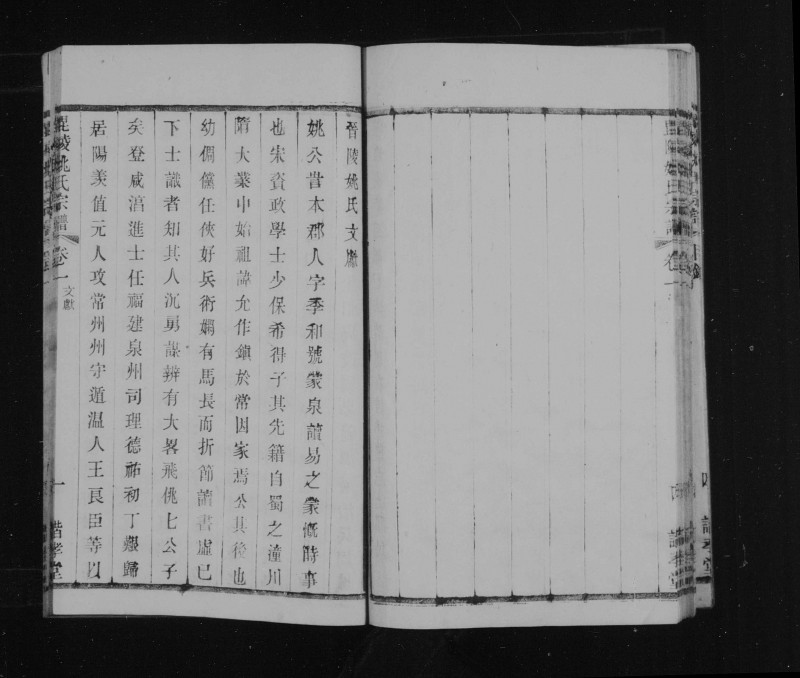 晉陵姚氏文獻
姚公訔本郡人字季和號蒙泉讀易之蒙慨時事
也宋資政學士少保希得子其先籍自蜀之潼川
隋大業中始祖諱允作鎮於常因家焉公其後也
幼倜儻任俠好兵術嫺有馬長而折節讀書虛已
下士識者知其人沉勇謀辨有大畧飛佻七公子
矣登咸淳進士任福建泉州司理德祐初丁艱歸
居陽羨值元人攻常州州守遁溫人王良臣等以
毘陵姚氏宗譜
卷一
文獻
一